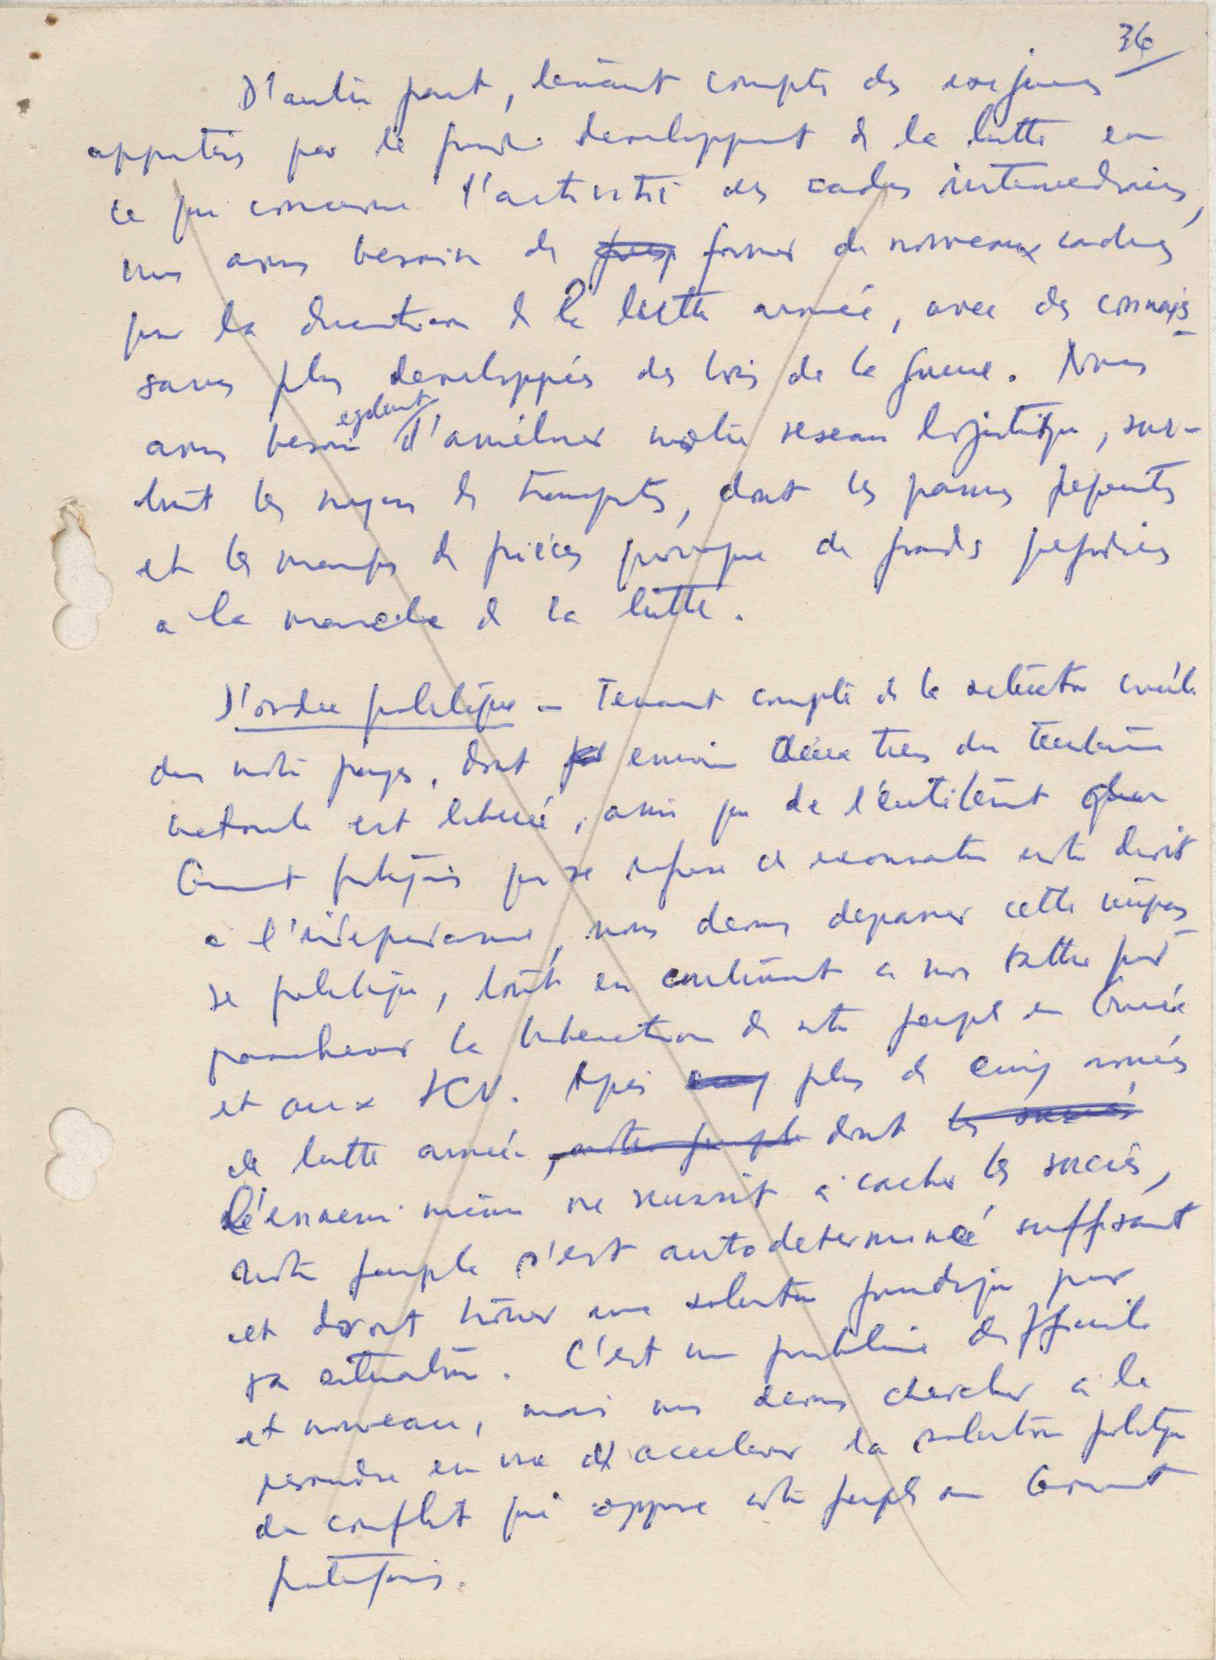 36
D'autre part, tenant compte des exigences
apportées par le grand developpement de la lutte en
ce qui concerne l'activité des cadres intermediaires,
nous avons besoin de former de nouveaux cadres
pour la direction de la lutte armée, avec des connais-
sances plus developpées des lois de la guerre. Nous
avons besoin egalement d'améliorer notre reseau logistique, sur-
tout les moyens de transports, dont les pannes frequentes
et les manques de pièces provoque de grands prejudices
a la marche de la lutte.
D'ordre politique - Tenant compte de la situation concrète
dans notre pays, dont environ deux tiers du territoire
nationale est liberé, ainsi que de l'entêtement du
Gouvernement portugais qui se refuse de reconnaitre notre droit
a l'independance, nous devons depasser cette impas-
se politique, tout en continuant a nous battre pour
parachever la liberation de notre peuple en Guinée
et aux ICV. Après plus de cinq années
de lutte armée, dont
l'ennemi même ne reussit à cacher les succès,
notre peuple s'est autodeterminé suffisant
et devrait trouver une solution juridique pour
sa situation. C'est un problème difficile
et nouveau, mais nous devons chercher a le
resoudre en vue d'accelerer la solution politique
du conflit qui oppose notre peuple au Gouvernement
portugais.